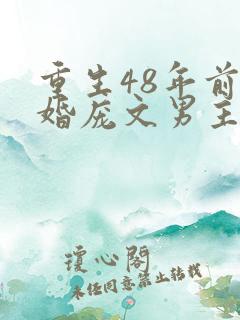 重生48年前
婚庞文男主
瓊心閣
未经同意禁止转载